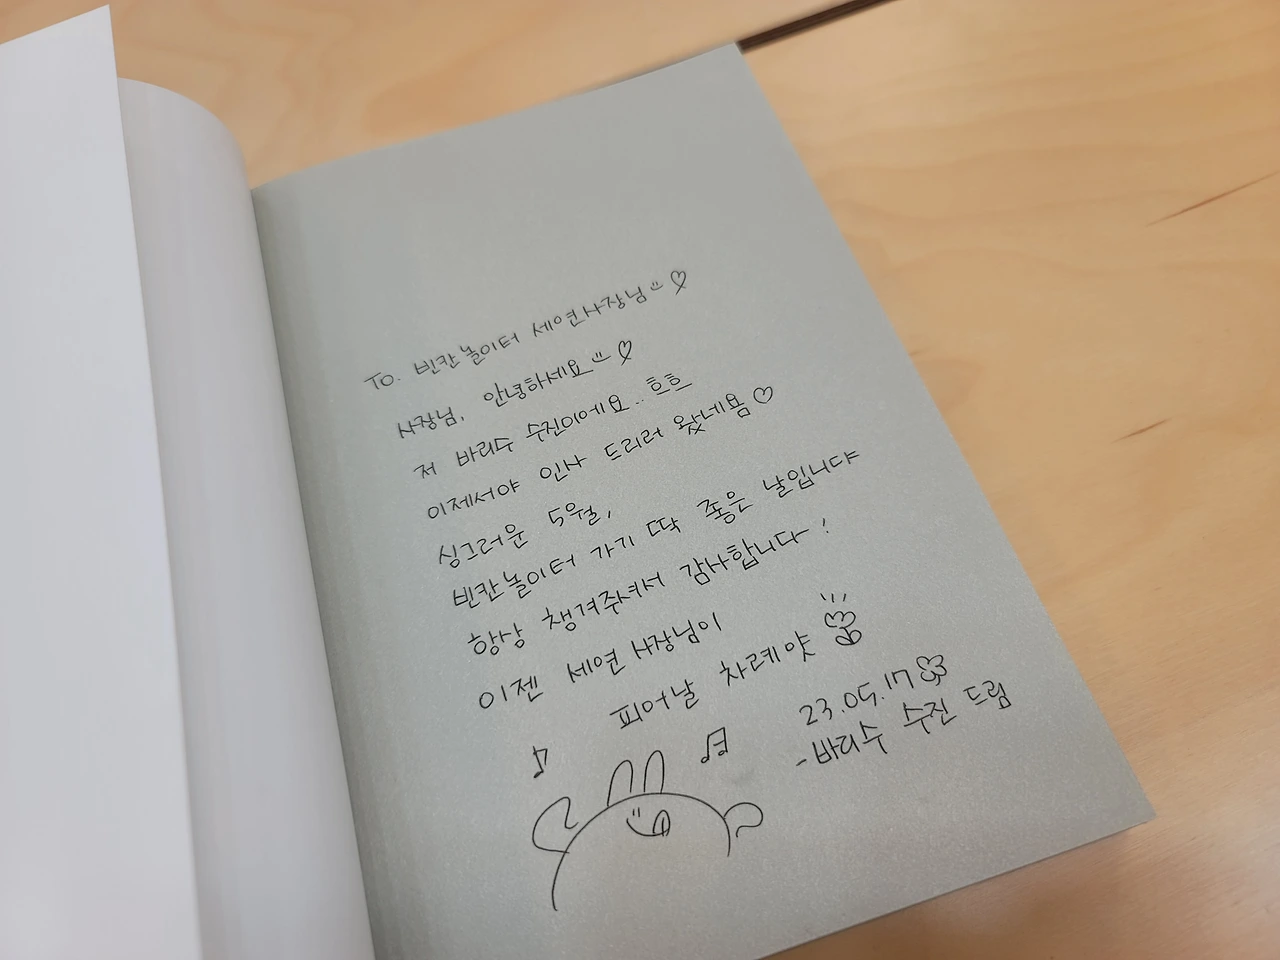 To. 빈칸놀이터 세연사장님
사장님, 안녕하세요
저 바리수 수진이에요.. 흐흐
이제서야 인사 드리러 왔네욤
싱그러운 5월,
빈칸놀이터 가기 딱 좋은 날입니다
항상 챙겨주셔서 감사합니다~!
이젠 세연 사장님이
피어날 차례얏
23.05.17
-바리수 수진 드림